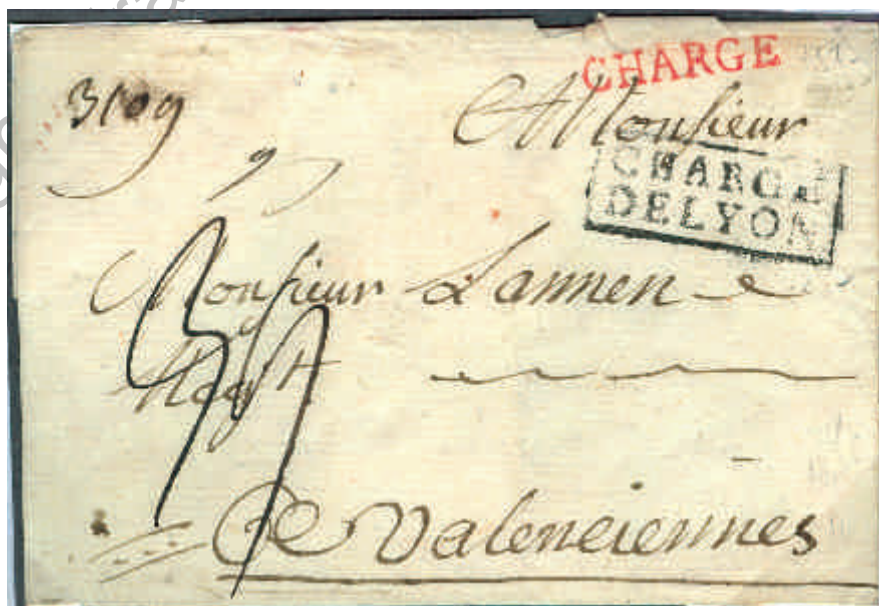 CHARGE
3109
A Monsieur
CHARGÉ
DE LYON
Monsieur Lannen
Negt
Valenciennes